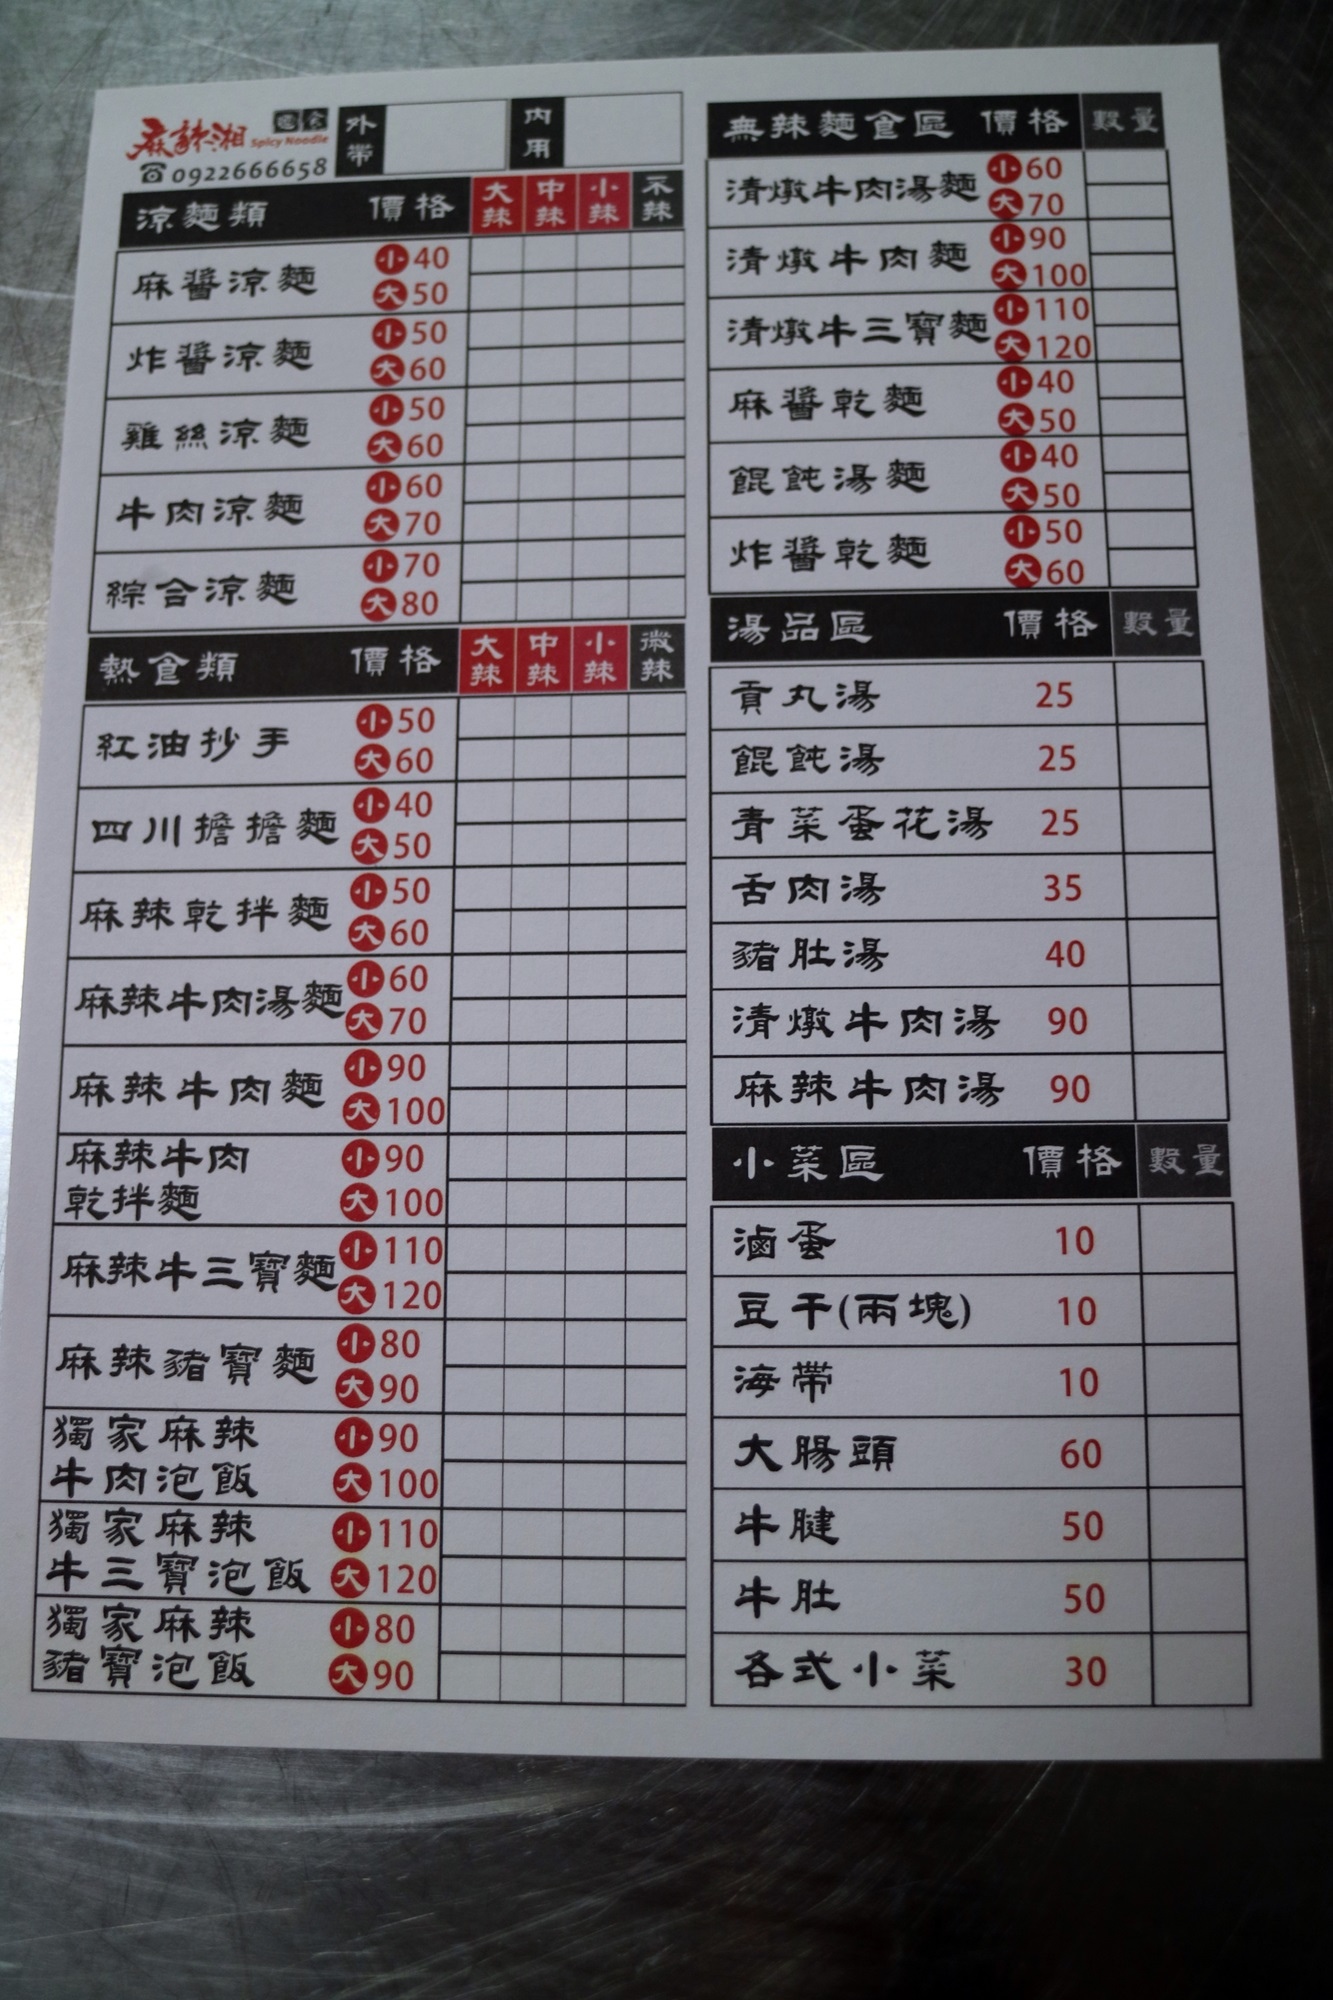 麻辣湘 麵食
Spicy Noodle
☎0922666658
外帶
內用
涼麵類 價格 大辣 中辣 小辣 不辣
麻醬涼麵 小40
大50
炸醬涼麵 小50
大60
雞絲涼麵 小50
大60
牛肉涼麵 小60
大70
綜合涼麵 小70
大80
熱食類 價格 大辣 中辣 小辣 微辣
紅油抄手 小50
大60
四川擔擔麵 小40
大50
麻辣乾拌麵 小50
大60
麻辣牛肉湯麵 小60
大70
麻辣牛肉麵 小90
大100
麻辣牛肉 小90
乾拌麵 大100
麻辣牛三寶麵 小110
大120
麻辣豬寶麵 小80
大90
獨家麻辣 小90
牛肉泡飯 大100
獨家麻辣 小110
牛三寶泡飯 大120
獨家麻辣 小80
豬寶泡飯 大90
無辣麵食區 價格 數量
清燉牛肉湯麵 小60
大70
清燉牛肉麵 小90
大100
清燉牛三寶麵 小110
大120
麻醬乾麵 小40
大50
餛飩湯麵 小40
大50
炸醬乾麵 小50
大60
湯品區 價格 數量
貢丸湯 25
餛飩湯 25
青菜蛋花湯 25
舌肉湯 35
豬肚湯 40
清燉牛肉湯 90
麻辣牛肉湯 90
小菜區 價格 數量
滷蛋 10
豆干(兩塊) 10
海帶 10
大腸頭 60
牛腱 50
牛肚 50
各式小菜 30